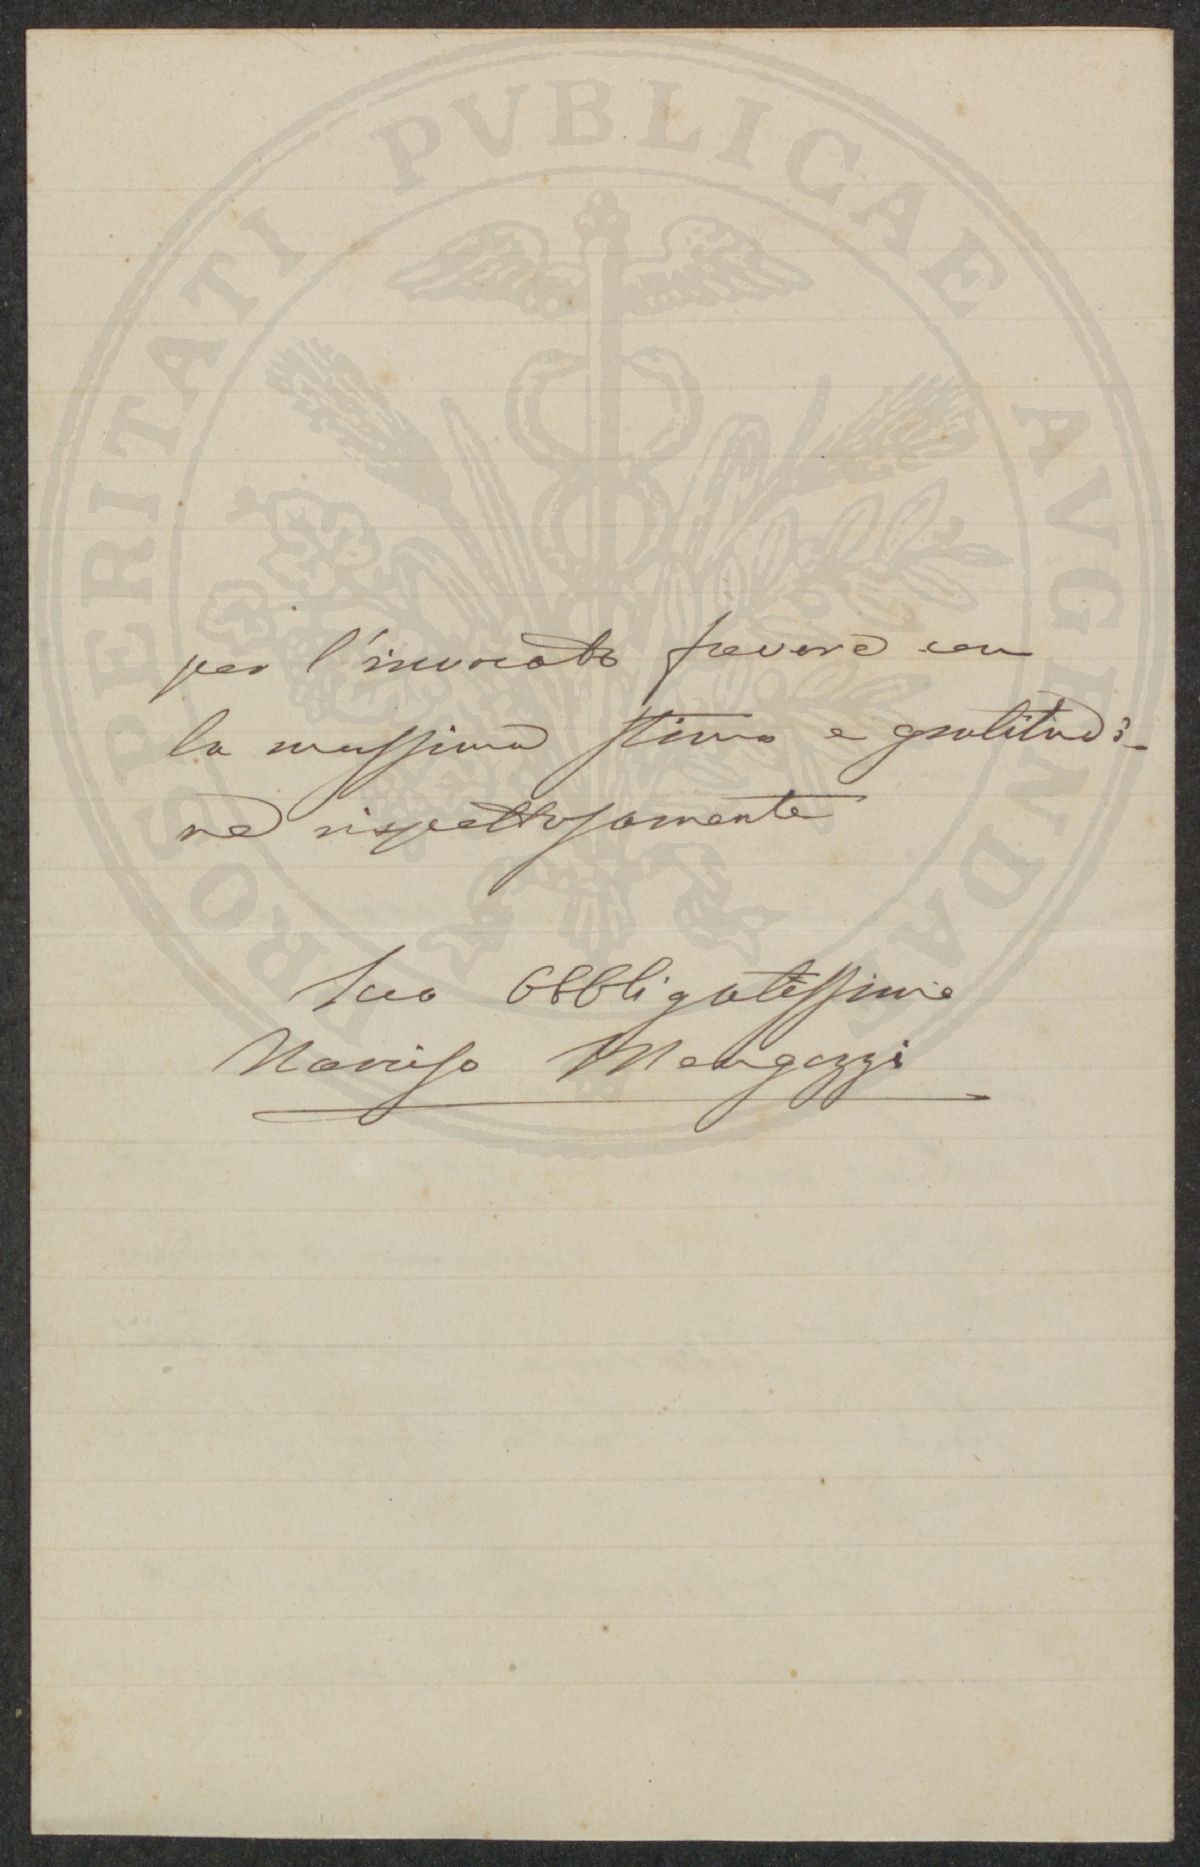 PROSPERITATI PVBLICAE AVGENDAE
per l'invocato favore con
la massima stima e gratitudi-
ne rispettosamente
Suo Obbligatissimo
Narciso Mengozzi